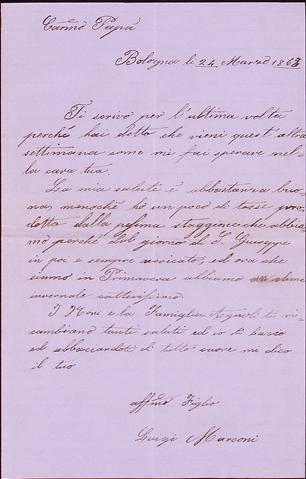 Carmo Papà
Bologna li 24 Marzo 1863
Ti scrivo per l'ultima volta
perchè hai detto che vieni quest'altra
settimana come mi fai sperare nel-
la cara tua.
La mia salute è abbastanza buo-
na, menochè ho un poco di tosse pro-
dotto dalla pessima staggione che abbia-
mo perchè dal giorno di S. Giuseppe
in poi è sempre nevicato, ed ora che
siamo in Primavera abbiamo un clima
invernale cattivissimo.
I Noni e la Famiglia Agnoli ti ri-
cambiano tanti saluti ed io ti bacio
ed abbracciandoti di tutto cuore mi dico
il tuo
affmo Figlio
Luigi Marconi